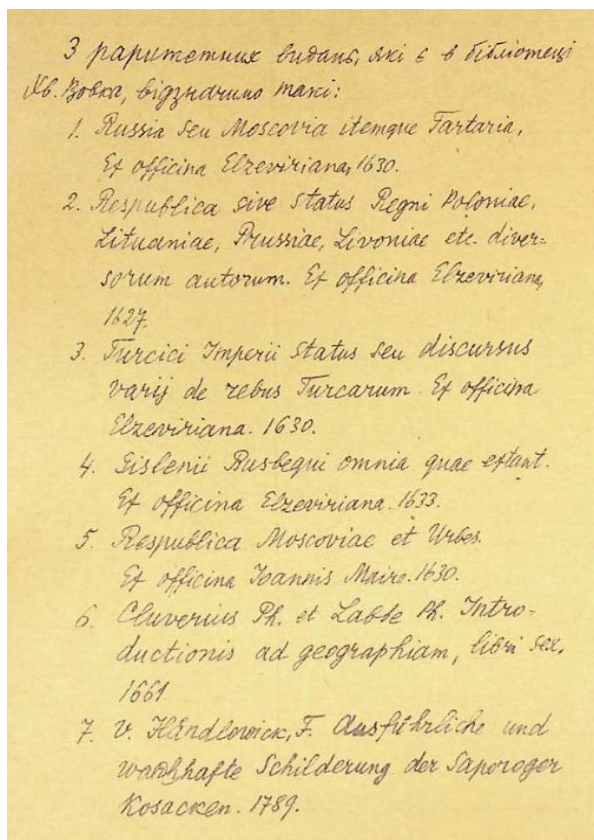 З раритетних видань, які є в бібліотеці
Хв. Вовка, відзначимо такі:
1. Russia seu Moscovia itemque Tartaria,
Ex officina Elzeviriana, 1630.
2. Respublica sive status Regni Poloniae,
Lituaniae, Prussiae, Livoniae etc. diver-
sorum autorum. Ex officina Elzeviriana,
1627.
3. Turcici Imperii status seu discursus
varij de rebus Turcarum. Ex officina
Elzeviriana. 1630.
4. Gislenii Busbequi omnia quae extant.
Ex officina Elzeviriana. 1633.
5. Respublica Moscoviae et Urbes.
Ex officina Ioannis Maire. 1630.
6. Cluverius Ph. et Labbe Ph. Intro-
ductionis ad geographiam, libri sex,
1661.
7. V. Händlowick, F. Ausführliche und
wahrhafte Schilderung der Saporoger
Kosacken. 1789.